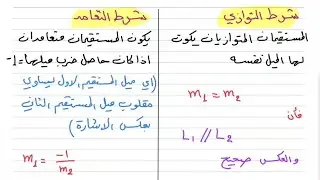 شرط التوازي
المستقيمان المتوازيان يكون
لها الميل نفسه
m₁ = m₂
فأن
L₁ // L₂
والعكس صحيح
شرط التعامد
يكون المستقيمان متعامدان
اذا كان حاصل ضرب ميليهما = -1
(اي ميل المستقيم الاول يساوي
مقلوب ميل المستقيم الثاني
بعكس الاشارة)
m₁ = -1/m₂